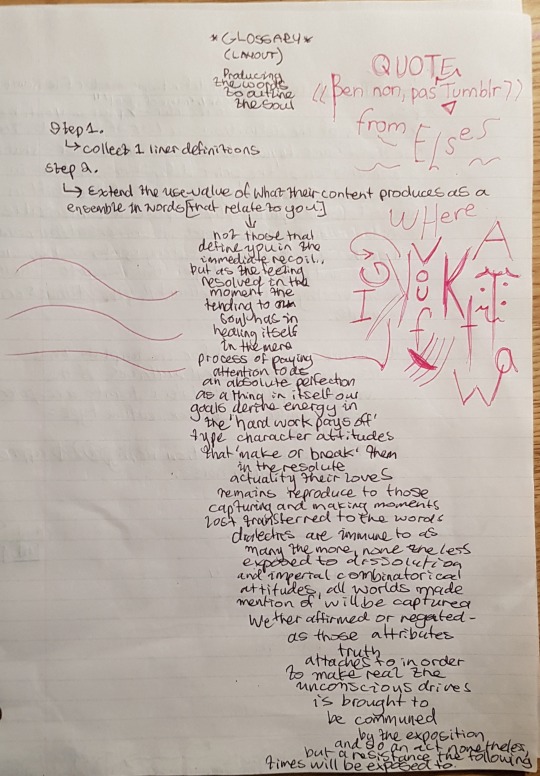 *GLOSSARY*
(LAYOUT)
Producing
the words
to outline
the soul
QUOTE
((Beni non, pas Tumblr?))
from ELSES
Step 1.
↳ collect 1 liner definitions
Step 2.
↳ Extend the use-value of what their content produces as a
ensemble in words [that relate to you]
↓
not those that
define you in the
immediate recoil..
but as the feeling
resolved in the
moment the
tending to our
soul has in
healing itself
in the mere
process of paying
attention to do
an absolute perfection
as a thing in itself our
goals derive energy in
the 'hard work pays off'
type character attitudes
that 'make or break' them
in the resolute
actuality their loves
remains reproduce to those
capturing and making moments
lost transferred to the words
dialectics are immune to as
many the more, none the less
exposed to dissolution
and imperial combinatorical
attitudes, all worlds made
mention of will be captured
Wether affirmed or negated -
as those attributes
truth
attaches to in order
to make real the
unconscious drives
is brought to
be communed
by the exposition
and so an act nonetheless,
but a resistance the following
times will be exposed to
WHere